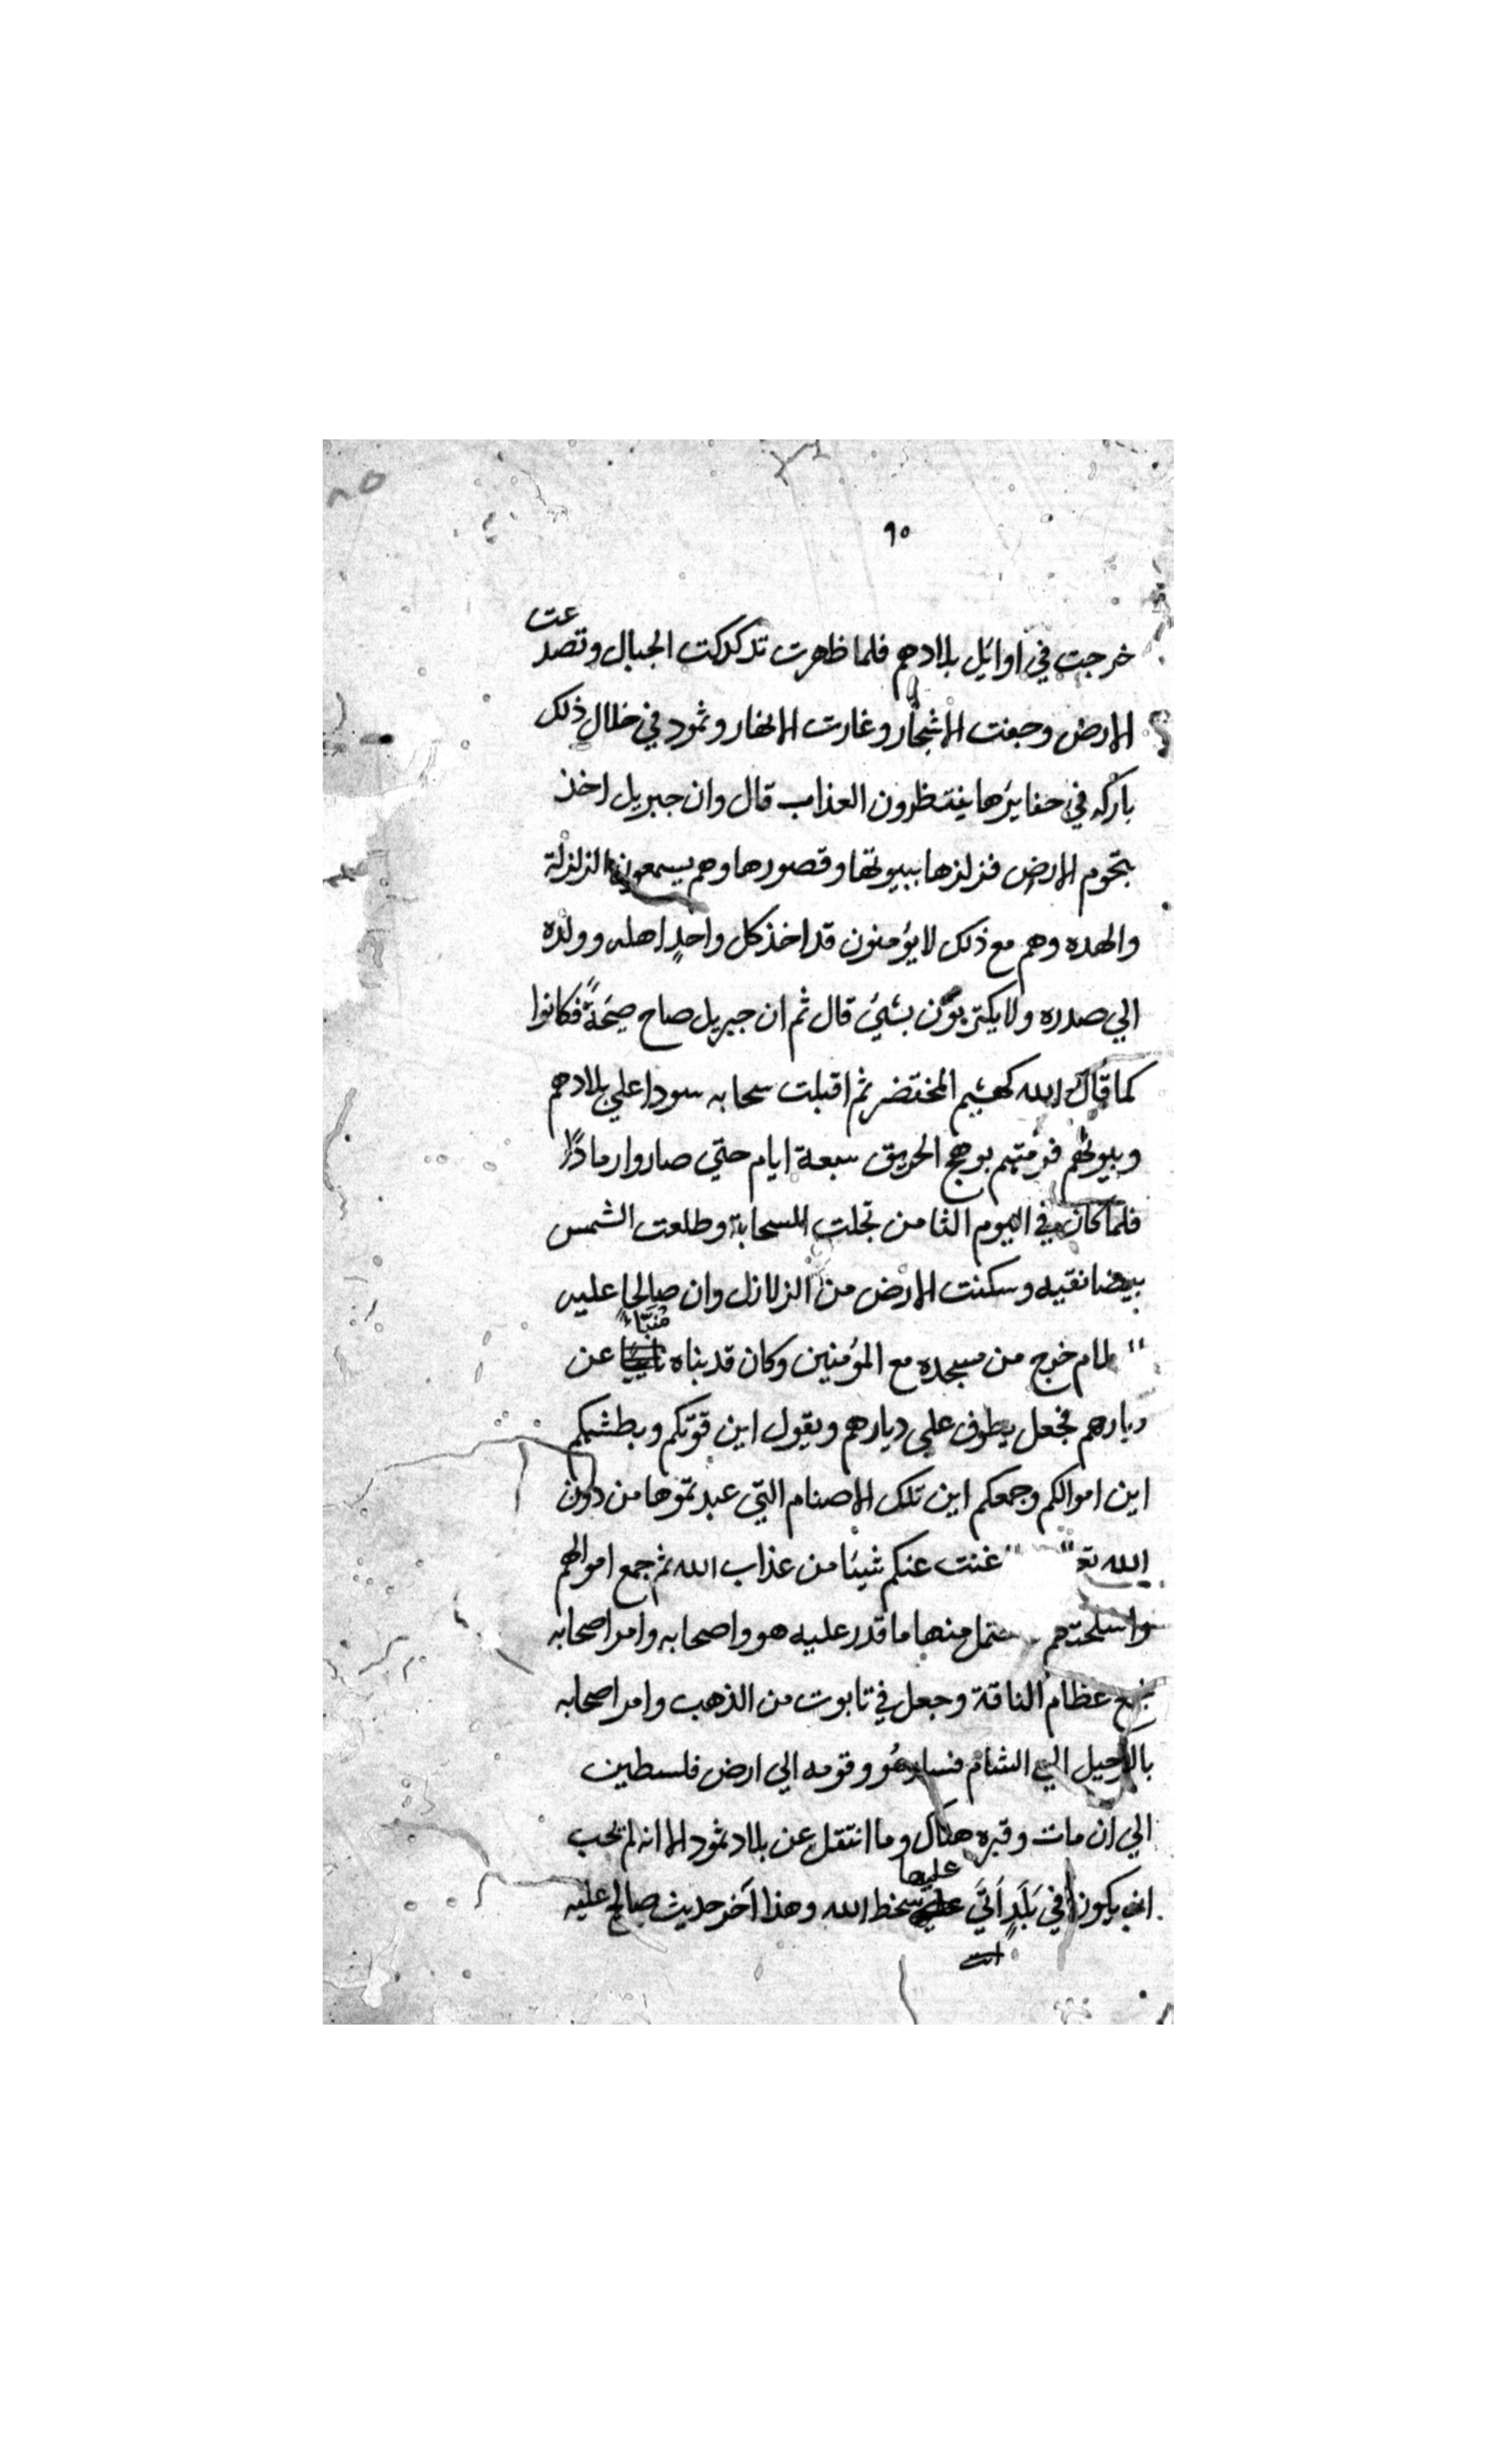 ٩٠
خرجت في اوائل بلادهم فلما ظهرت تدكدكت الجبال وتصدعت
الارض وجفت الاشجار وغارت الانهار وثمود في خلال ذلك
باركه في حفايرها ينتظرون العذاب قال وان جبريل اخذ
بتخوم الارض فزلزها ببيوتها وقصورها وهم يسمعون الزلزلة
والهده وهم مع ذلك لا يؤمنون قد اخذ كل واحدٍ اهله وولده
الي صدره ولا يكتربون بشيئ قال ثم ان جبريل صاح صيحةً فكانوا
كما قال الله كهشيم المختضر ثم اقبلت سحابه سودا علي بلادهم
وبيوتهم فرمتهم بوهج الحريق سبعة ايام حتي صاروا رمادًا
فلما كان في اليوم الثامن تجلت السحابة وطلعت الشمس
بيضا نقيه وسكنت الارض من الزلازل وان صالحا عليه
لام خرج من مسجده مع المؤمنين وكان قد بناه عن
ديارهم فجعل يطوف علي ديارهم ويقول اين قوتكم وبطشكم
اين اموالكم وجمعكم اين تلك الاصنام التي عبدتموها من دون
الله تع غنت عنكم شيئا من عذاب الله ثم جمع اموالهم
واسلحتهم منها ما قدر عليه هو واصحابه وامر اصحابه
عظام الناقة وجعل في تابوت من الذهب وامر اصحابه
بالرحيل الي الشام فسار هو وقومه الي ارض فلسطين
الي ان مات وقبره هناك وما انتقل عن بلاد ثمود الا انه لم يحب
ان يكون في بَلَدٍ اَتَيَ عليها سخط الله وهذا آخر حديث صالح عليه